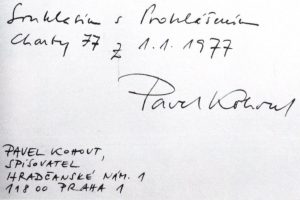 Souhlasím s Prohlášením
Charty 77 z 1.1.1977
Pavel Kohout
PAVEL KOHOUT,
SPISOVATEL
HRADČANSKÉ NÁM. 1
118 00 PRAHA 1